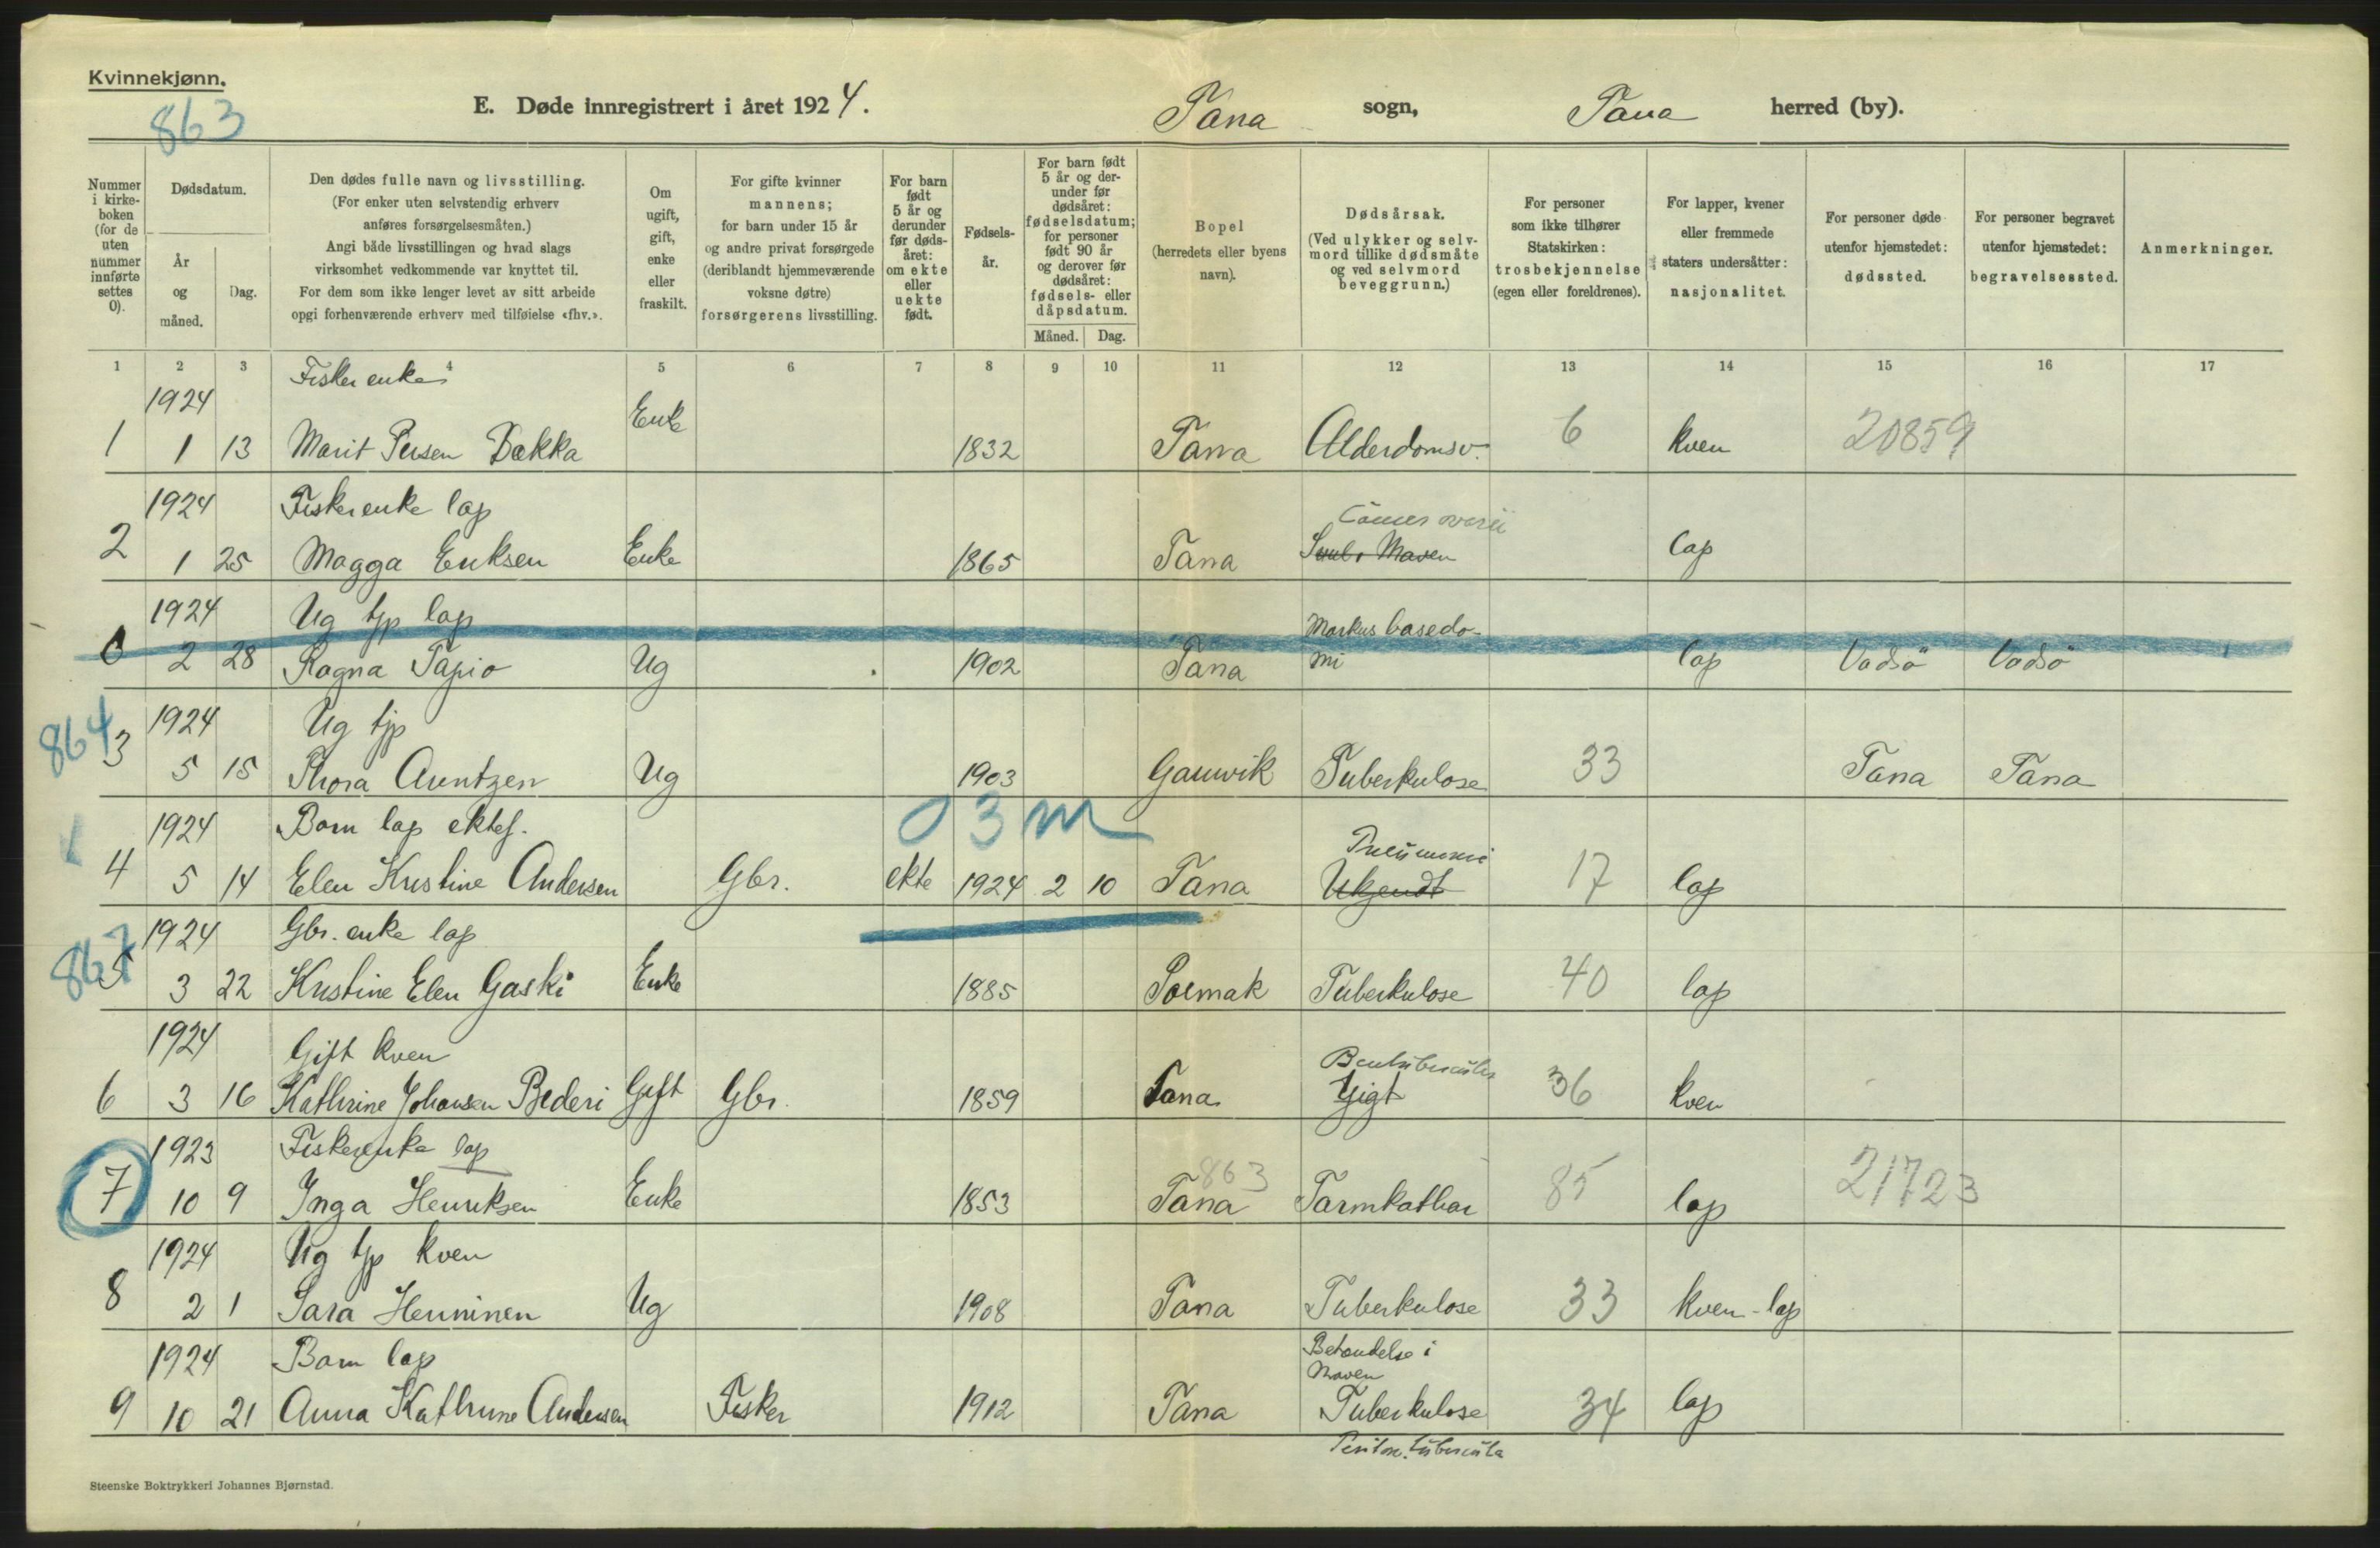 Kvinnekjønn.
863
E. Døde innregistrert i året 1924.
Tana sogn, Tana herred (by).
Nummer i kirkeboken (for de uten nummer innførte settes 0).
Dødsdatum.
År og måned.
Dag.
Den dødes fulle navn og livsstilling.
(For enker uten selvstendig erhverv
anføres forsørgelsesmåten.)
Angi både livsstillingen og hvad slags
virksomhet vedkommende var knyttet til.
For dem som ikke lenger levet av sitt arbeide
opgi forhenværende erhverv med tilføielse «fhv.».
Om ugift, gift, enke eller fraskilt.
For gifte kvinner
mannens;
for barn under 15 år
og andre privat forsørgede
(deriblandt hjemmeværende
voksne døtre)
forsørgerens livsstilling.
For barn født 5 år og derunder før dødsåret: om ekte eller uekte født.
Fødselsår.
For barn født
5 år og derunder før
dødsåret:
fødselsdatum;
for personer
født 90 år
og derover før
dødsåret:
fødsels- eller
dåpsdatum.
Måned. Dag.
Bopel
(herredets eller byens
navn).
Dødsårsak.
(Ved ulykker og selvmord tillike dødsmåte
og ved selvmord
beveggrunn.)
For personer
som ikke tilhører
Statskirken:
trosbekjennelse
(egen eller foreldrenes).
For lapper, kvener
eller fremmede
staters undersåtter:
nasjonalitet.
For personer døde
utenfor hjemstedet:
dødssted.
For personer begravet
utenfor hjemstedet:
begravelsessted.
Anmerkninger.
1 2 3 4 5 6 7 8 9 10 11 12 13 14 15 16 17
1924 Fisker enke
1 1 13 Marit Persen Dakka Enke 1832 Tana Alderdomsv. 6 kven 20859
1924 Fiskerenke lap
Cancer ovarii
2 1 25 Magga Eriksen Enke 1865 Tana Maven lap
1924 Ug tjp lap
Morbus basedo-
0 2 28 Ragna Tapio Ug 1902 Tana wi lap Vadsö Vadsö
864
1924 Ug tjp
3 5 15 Thora Arentzen Ug 1903 Gamvik Tuberkulose 33 Tana Tana
0 3 m
1924 Barn lap ektef.
Pneumoni
4 5 14 Elen Kristine Andersen Gbr. ekte 1924 2 10 Tana Ukjendt 17 lap
867
1924 Gbr. enke lap
5 3 22 Kristine Elen Gaski Enke 1885 Polmak Tuberkulose 40 lap
1924 Gift kven
Bentuberculos
6 3 16 Kathrine Johansen Bederi Gift Gbr. 1859 Tana Gigt 36 kven
1923 Fiskerenke lap
863
7 10 9 Inga Henriksen Enke 1853 Tana Tarmkathar 85 lap 21723
1924 Ug tjp kven
8 2 1 Sara Henninen Ug 1908 Tana Tuberkulose 33 kven-lap
1924 Barn lap
Betendelse i
Maven
9 10 21 Anna Kathrine Andersen Fisker 1912 Tana Tuberkulose 34 lap
Periton. tubercula
Steenske Boktrykkeri Johannes Bjørnstad.